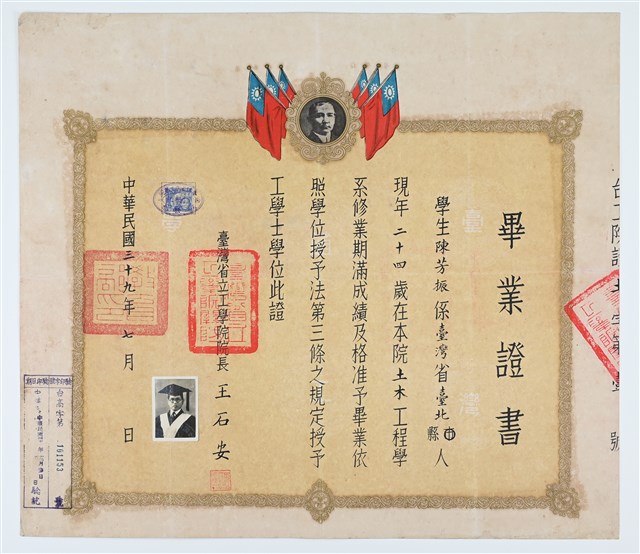 畢業證書
學生陳芳振係臺灣省臺北市縣人
現年二十四歲在本院土木工程學
系修業期滿成績及格准予畢業依
照學位授予法第三條之規定授予
工學士學位此證
臺灣省立工學院院長 王石安
中華民國三十九年七月 日
號
台高字第
161153
號